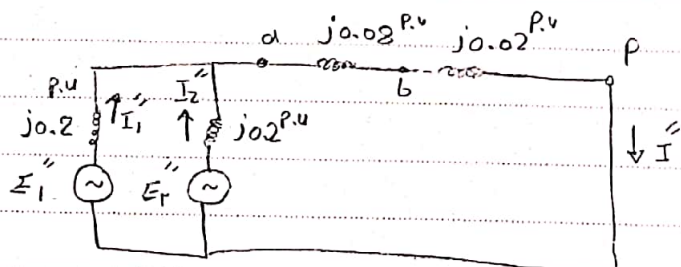 a j0.08 P.u b j0.02 P.u P
P.u j0.2 I₁" I₂" j0.2 P.u ↓ I"
E₁" ~ E₂" ~